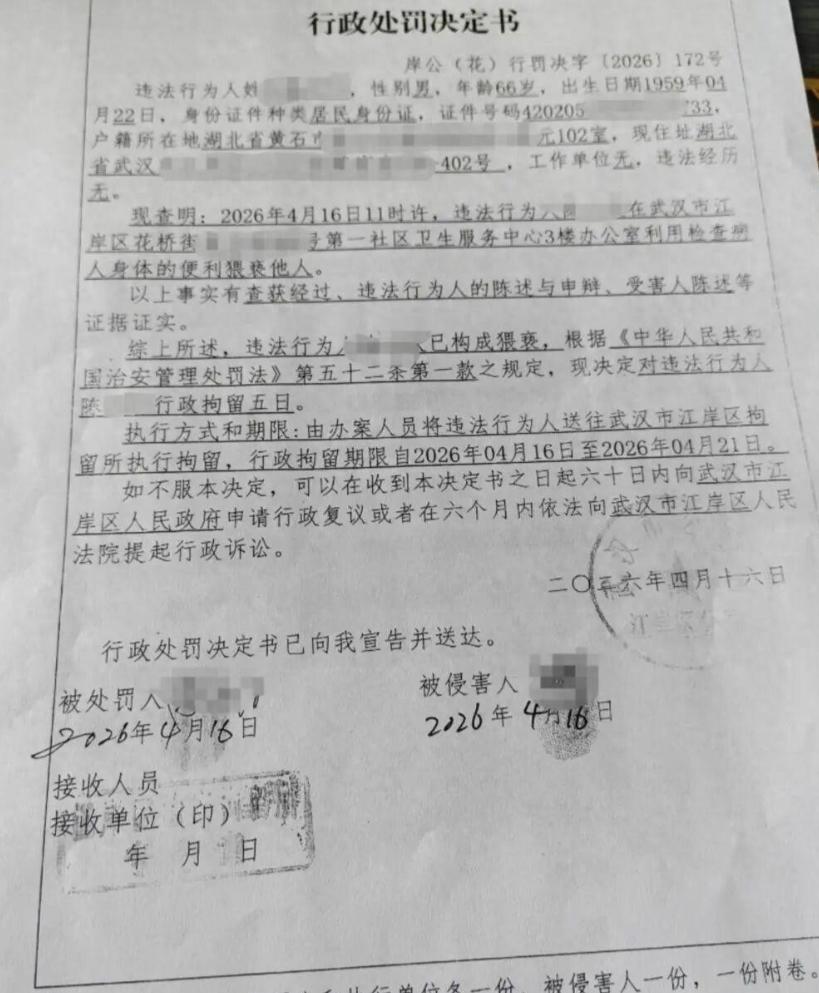 行政处罚决定书
岸公（花）行罚决字〔2026〕172号
违法行为人姓 ，性别男，年龄66岁，出生日期1959年04
月22日，身份证件种类居民身份证，证件号码420205 733，
户籍所在地湖北省黄石市 元102室，现住址湖北
省武汉 402号，工作单位无，违法经历
无。
现查明：2026年4月16日11时许，违法行为人 在武汉市江
岸区花桥街 号第一社区卫生服务中心3楼办公室利用检查病
人身体的便利猥亵他人。
以上事实有查获经过、违法行为人的陈述与申辩、受害人陈述等
证据证实。
综上所述，违法行为人 已构成猥亵，根据《中华人民共和
国治安管理处罚法》第五十二条第一款之规定，现决定对违法行为人
陈 行政拘留五日。
执行方式和期限：由办案人员将违法行为人送往武汉市江岸区拘
留所执行拘留，行政拘留期限自2026年04月16日至2026年04月21日。
如不服本决定，可以在收到本决定书之日起六十日内向武汉市江
岸区人民政府申请行政复议或者在六个月内依法向武汉市江岸区人民
法院提起行政诉讼。
二〇二六年四月十六日
江岸区
行政处罚决定书已向我宣告并送达。
被处罚人 被侵害人
2026年4月16日 2026年4月16日
接收人员
接收单位（印）
年 月 日
执行单位各一份，被侵害人一份，一份附卷。